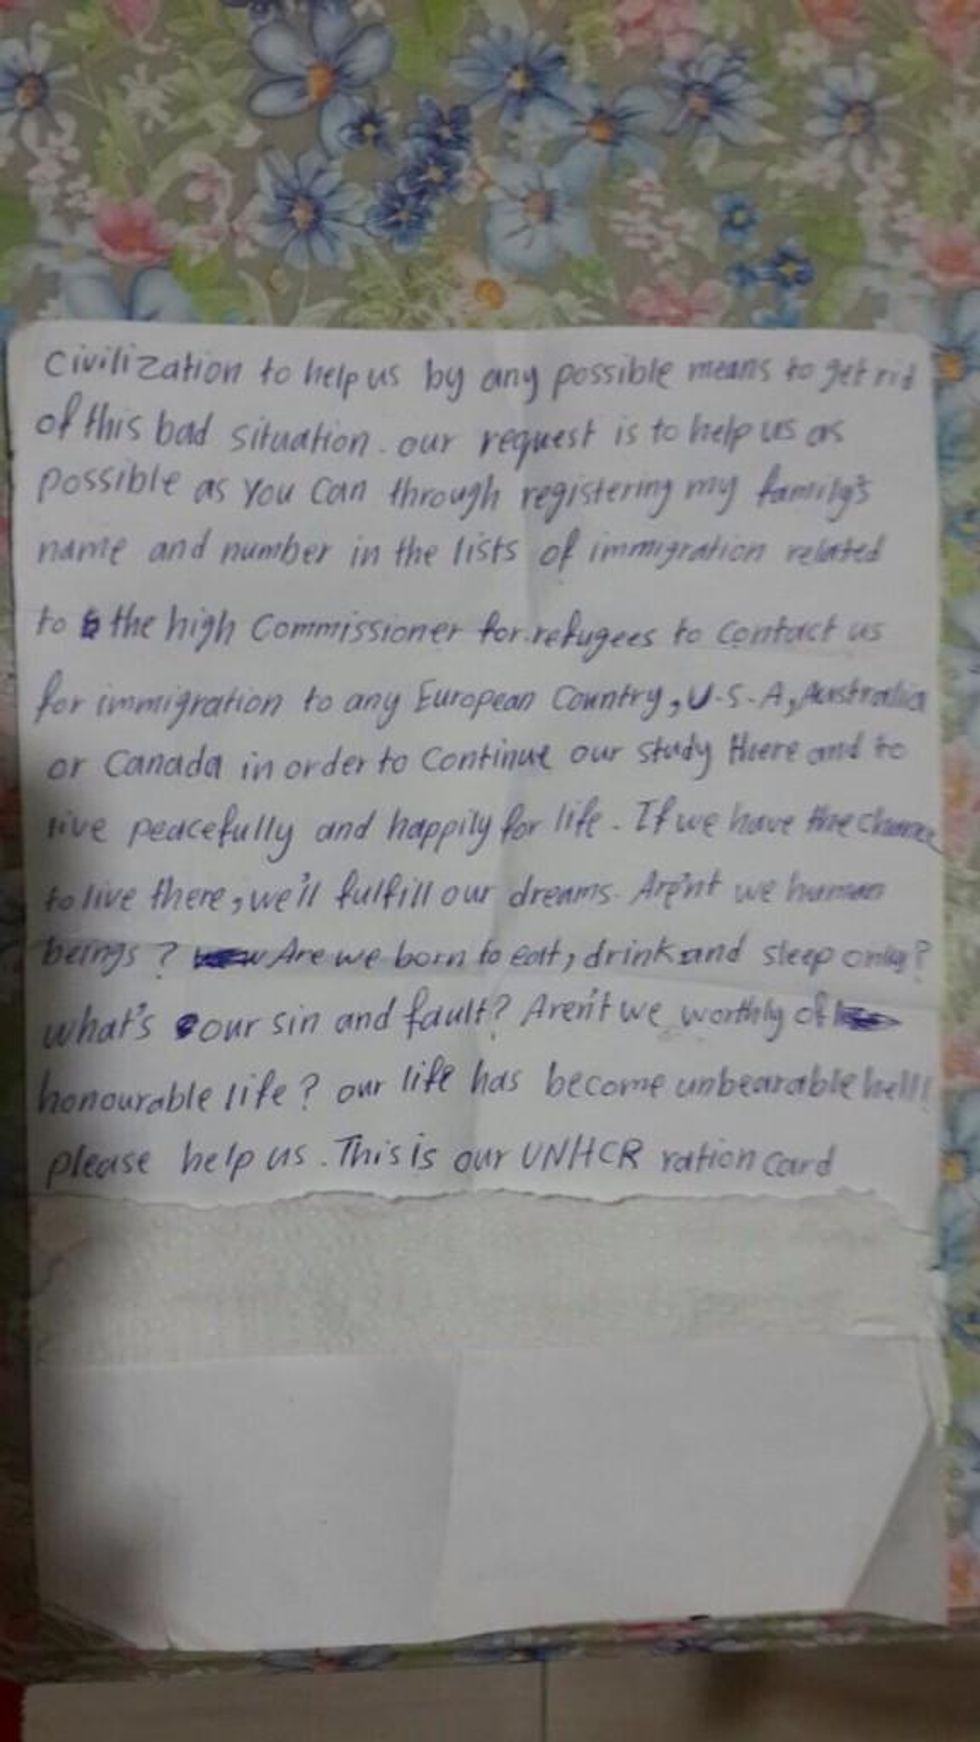 Civilization to help us by any possible means to get rid
of this bad situation. our request is to help us as
possible as you can through registering my family's
name and number in the lists of immigration related
to the high Commissioner for refugees to contact us
for immigration to any European Country, U.S.A, Australia
or Canada in order to Continue our study there and to
live peacefully and happily for life. If we have the chance
to live there, we'll fulfill our dreams. Are'nt we human
beings? Are we born to eat, drink and sleep only?
what's our sin and fault? Aren't we worthly of
honourable life? our life has become unbearable hell!
please help us. This is our UNHCR ration card